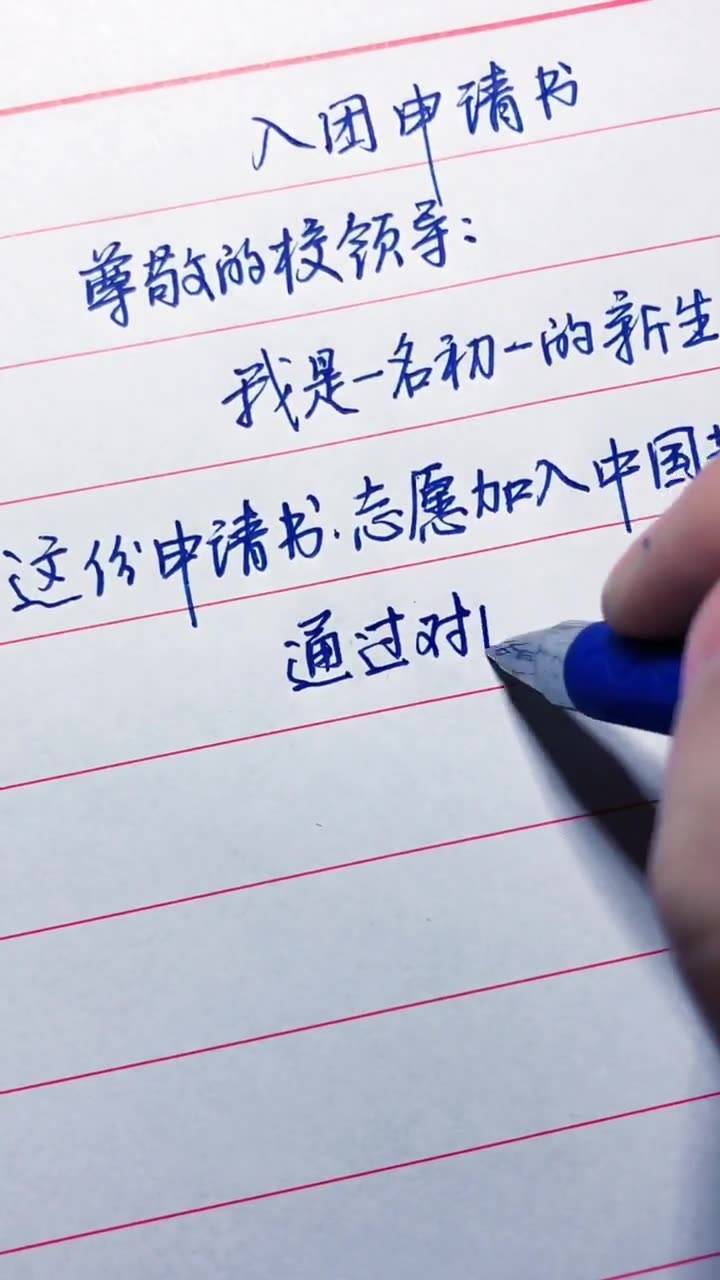 入团申请书
尊敬的校领导:
我是一名初一的新生
这份申请书.志愿加入中国
通过对